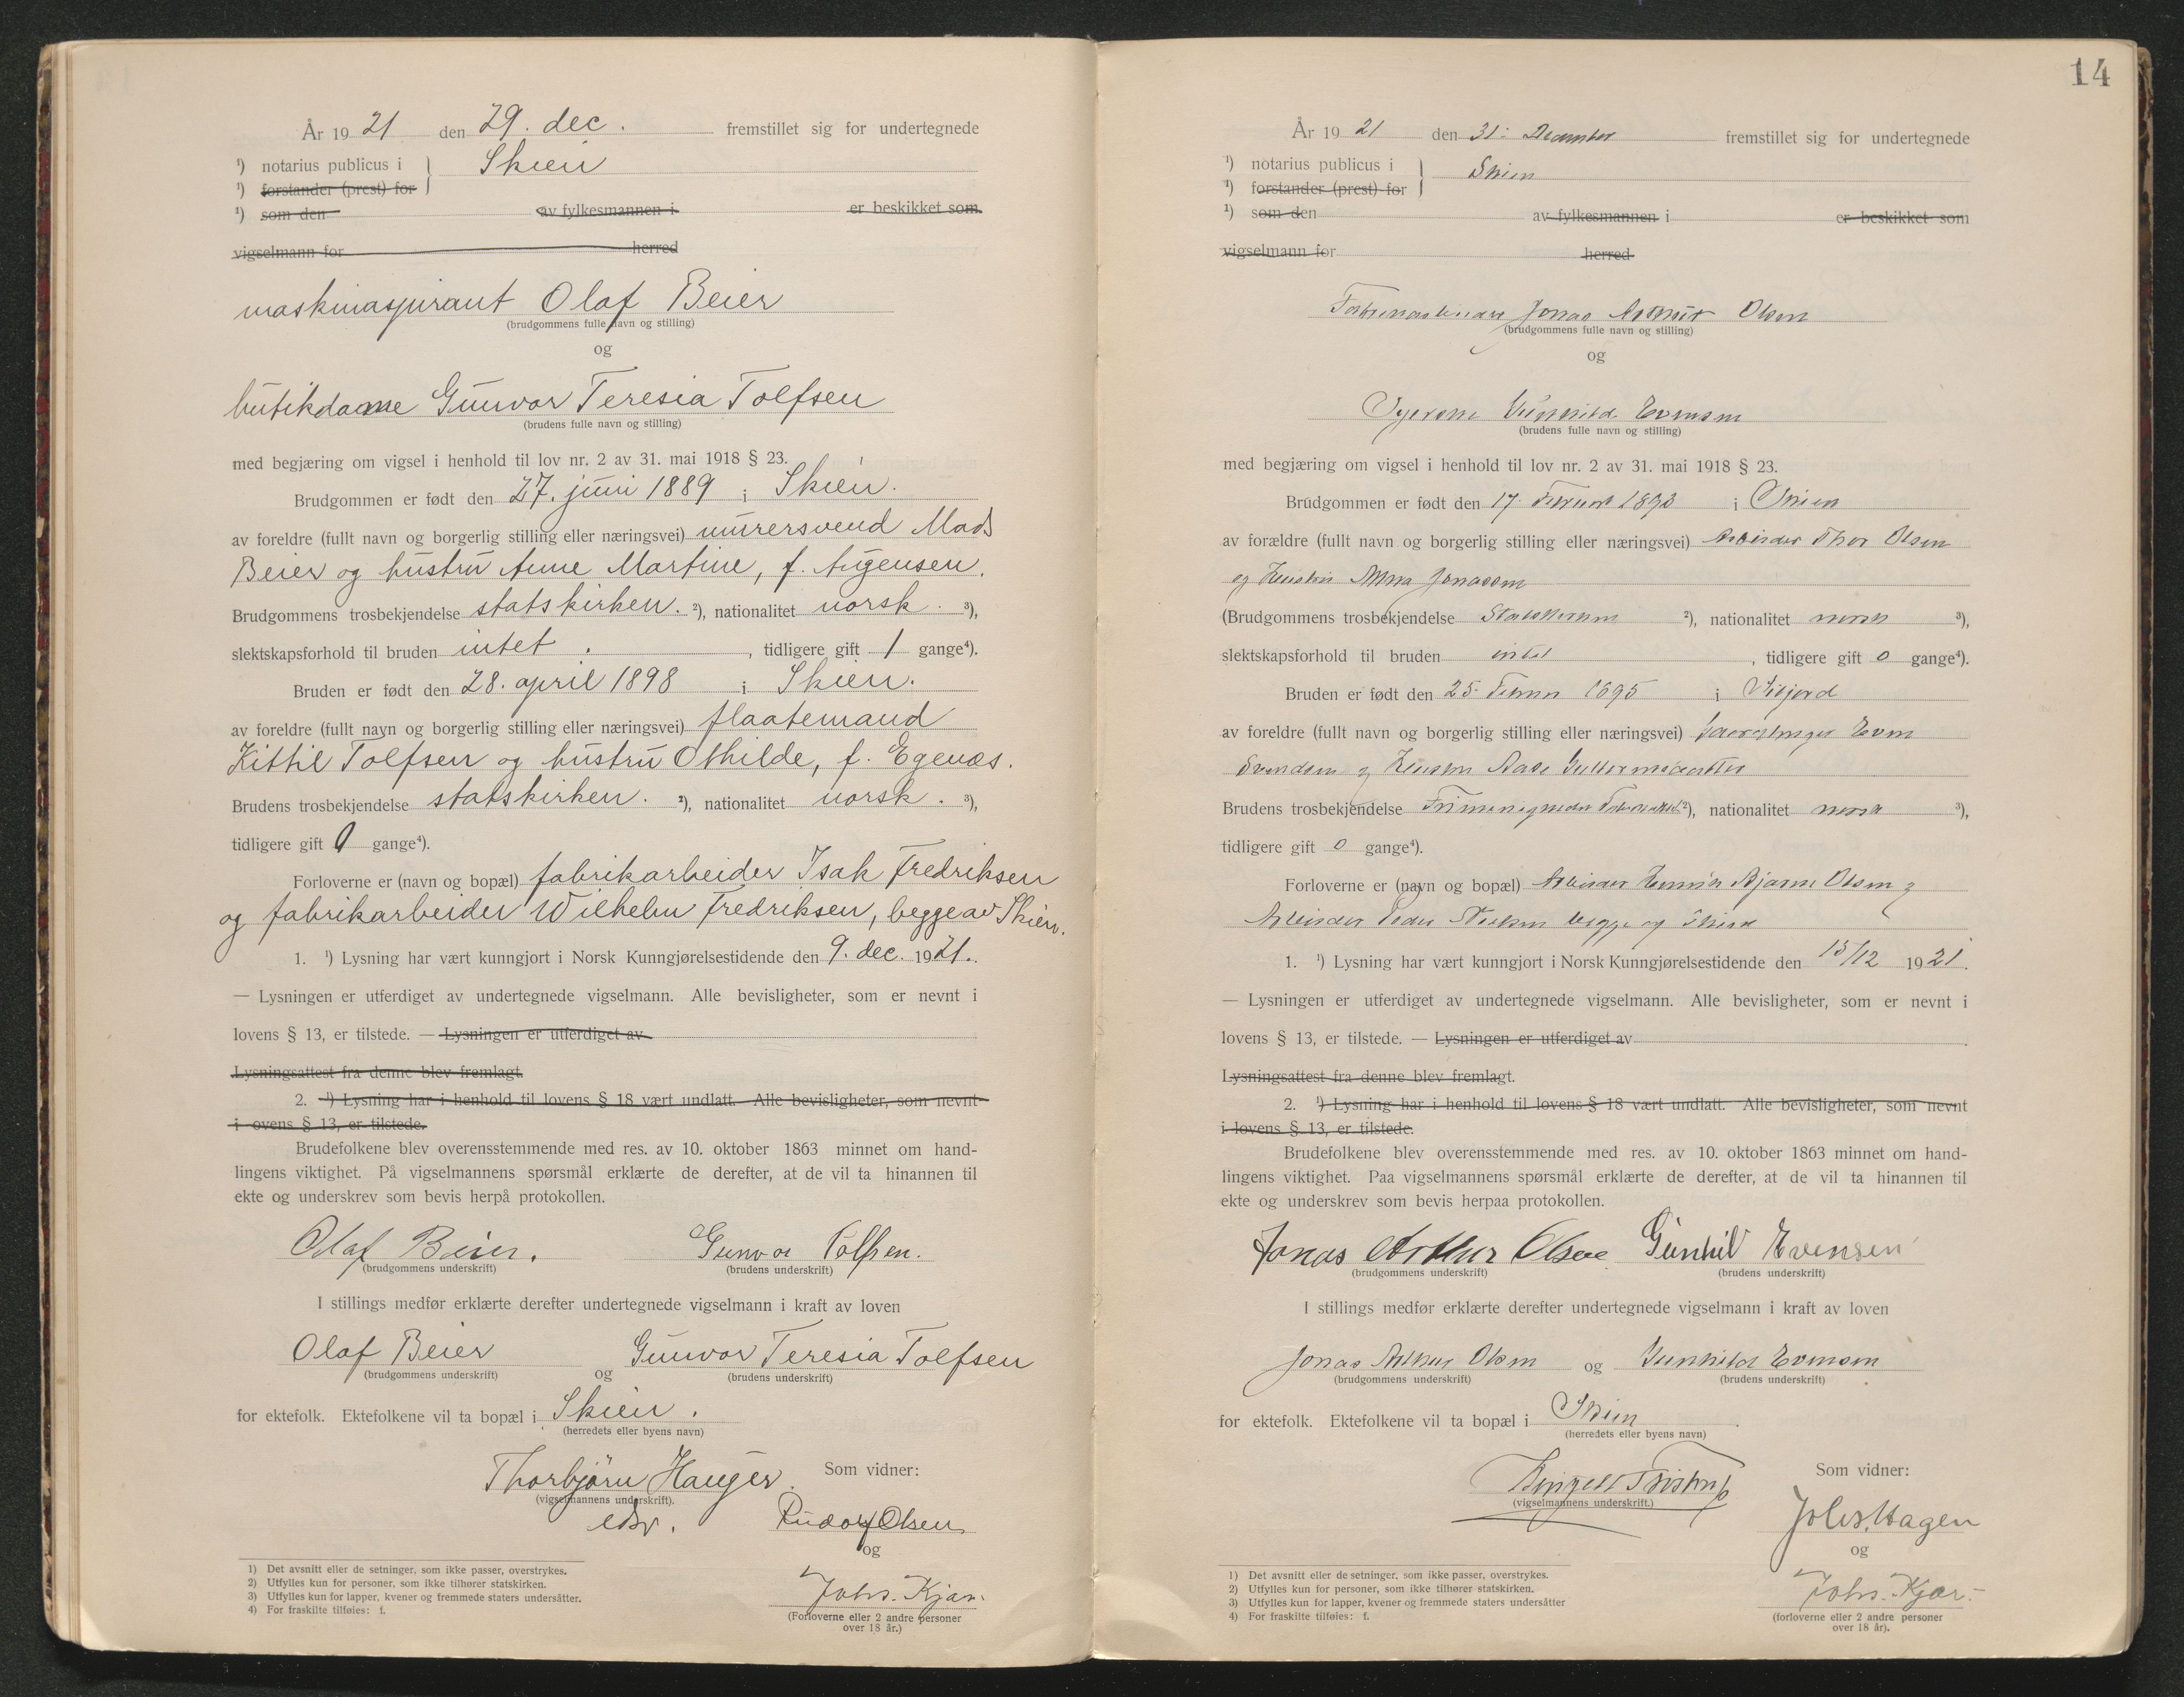 År 19 21 den 29. dec. fremstillet sig for undertegnede
¹) notarius publicus i } Skien
¹) forstander (prest) for
¹) som den av fylkesmannen i er beskikket som
vigselmann for herred
maskinaspirant Olaf Beier
(brudgommens fulle navn og stilling)
og
butikdame Gunvor Teresia Tolfsen
(brudens fulle navn og stilling)
med begjæring om vigsel i henhold til lov nr. 2 av 31. mai 1918 § 23.
Brudgommen er født den 27. juni 1889 i Skien.
av foreldre (fullt navn og borgerlig stilling eller næringsvei) murersvend Mads
Beier og hustru Anne Martine, f. Augensen.
Brudgommens trosbekjendelse statskirken. ²), nationalitet norsk. ³),
slektskapsforhold til bruden intet. , tidligere gift 1 gange⁴).
Bruden er født den 28. april 1898 i Skien.
av foreldre (fullt navn og borgerlig stilling eller næringsvei) flaatemand
Kittil Tolfsen og hustru Othilde, f. Egenæs.
Brudens trosbekjendelse statskirken. ²), nationalitet norsk. ³),
tidligere gift 0 gange⁴).
Forloverne er (navn og bopæl) fabrikarbeider Isak Fredriksen
og fabrikarbeider Wilhelm Fredriksen, begge av Skien.
1. ¹) Lysning har vært kunngjort i Norsk Kunngjørelsestidende den 9. dec. 1921.
— Lysningen er utferdiget av undertegnede vigselmann. Alle bevisligheter, som er nevnt i
lovens § 13, er tilstede. — Lysningen er utferdiget av
Lysningsattest fra denne blev fremlagt.
2. ¹) Lysning har i henhold til lovens § 18 vært undlatt. Alle bevisligheter, som nevnt
i ovens § 13, er tilstede.
Brudefolkene blev overensstemmende med res. av 10. oktober 1863 minnet om hand-
lingens viktighet. På vigselmannens spørsmål erklærte de derefter, at de vil ta hinannen til
ekte og underskrev som bevis herpå protokollen.
Olaf Beier. Gunvor Tolfsen.
(brudgommens underskrift) (brudens underskrift)
I stillings medfør erklærte derefter undertegnede vigselmann i kraft av loven
Olaf Beier og Gunvor Teresia Tolfsen
(brudgommens underskrift) (brudens underskrift)
for ektefolk. Ektefolkene vil ta bopæl i Skien.
(herredets eller byens navn)
Thorbjörn Hauger. Som vidner:
(vigselmannens underskrift).
edsv. Rudolf Olsen
og
Johs. Kjær.
(Forloverne eller 2 andre personer
over 18 år.)
1) Det avsnitt eller de setninger, som ikke passer, overstrykes.
2) Utfylles kun for personer, som ikke tilhører statskirken.
3) Utfylles kun for lapper, kvener og fremmede staters undersåtter.
4) For fraskilte tilføies: f.
14
År 19 21 den 31: December fremstillet sig for undertegnede
¹) notarius publicus i } Skien
¹) forstander (prest) for
¹) som den av fylkesmannen i er beskikket som
vigselmann for herred
Jonas Arthur Olsen
(brudgommens fulle navn og stilling)
og
Syerske Gunhild Evensen
(brudens fulle navn og stilling)
med begjæring om vigsel i henhold til lov nr. 2 av 31. mai 1918 § 23.
Brudgommen er født den 17. Februar 1893 i Skien
av forældre (fullt navn og borgerlig stilling eller næringsvei) Arbeider Thor Olsen
og Hustru Anna Jonassen
(Brudgommens trosbekjendelse Statskirken ²), nationalitet norsk ³),
slektskapsforhold til bruden intet , tidligere gift 0 gange⁴).
Bruden er født den 25. Februar 1895 i Siljord
av foreldre (fullt navn og borgerlig stilling eller næringsvei) Gaardbruger Even
Svendsen og Hustru Aase Guttormsdatter
Brudens trosbekjendelse ²), nationalitet norsk ³),
tidligere gift 0 gange⁴).
Forloverne er (navn og bopæl) Arbeider Henrik Bjarne Olsen og
Arbeider Peder begge af Skien
1. ¹) Lysning har vært kunngjort i Norsk Kunngjørelsestidende den 15/12 1921.
— Lysningen er utferdiget av undertegnede vigselmann. Alle bevisligheter, som er nevnt i
lovens § 13, er tilstede. — Lysningen er utferdiget av
Lysningsattest fra denne blev fremlagt.
2. ¹) Lysning har i henhold til lovens § 18 vært undlatt. Alle bevisligheter, som nevnt
i lovens § 13, er tilstede.
Brudefolkene blev overensstemmende med res. av 10. oktober 1863 minnet om hand-
lingens viktighet. Paa vigselmannens spørsmål erklærte de derefter, at de vil ta hinannen til
ekte og underskrev som bevis herpaa protokollen.
Jonas Arthur Olsen Gunhil Evensen
(brudgommens underskrift) (brudens underskrift)
I stillings medfør erklærte derefter undertegnede vigselmann i kraft av loven
Jonas Arthur Olsen og Gunhild Evensen
(brudgommens underskrift) (brudens underskrift)
for ektefolk. Ektefolkene vil ta bopæl i Skien.
(herredets eller byens navn)
Som vidner:
(vigselmannens underskrift.)
Johs. Hagen
og
Johs. Kjær.
(forloverne eller 2 andre personer
over 18 år).
1) Det avsnitt eller de setninger, som ikke passer, overstrykes.
2) Utfylles kun for personer, som ikke tilhører statskirken.
3) Utfylles kun for lapper, kvener og fremmede staters undersåtter
4) For fraskilte tilføies: f.